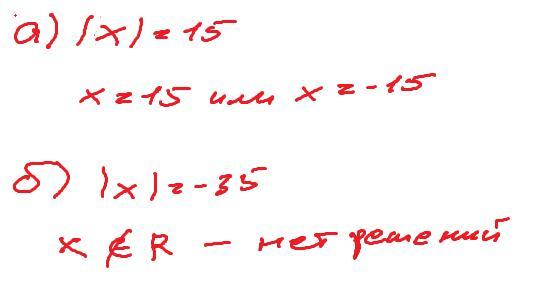 а) |x| = 15
x = 15 или x = -15
б) |x| = -35
x ∉ R - нет решений